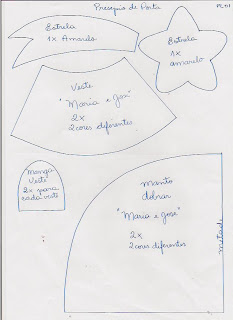 Presépio de Porta
PL 01
Estrela
1x Amarelo
Estrela
1x
amarelo
Veste
"Maria e José"
2x
2 cores diferentes
Manga
Veste
2x para
cada veste
Manto
dobrar
"Maria e José"
2x
2 cores diferentes
metade